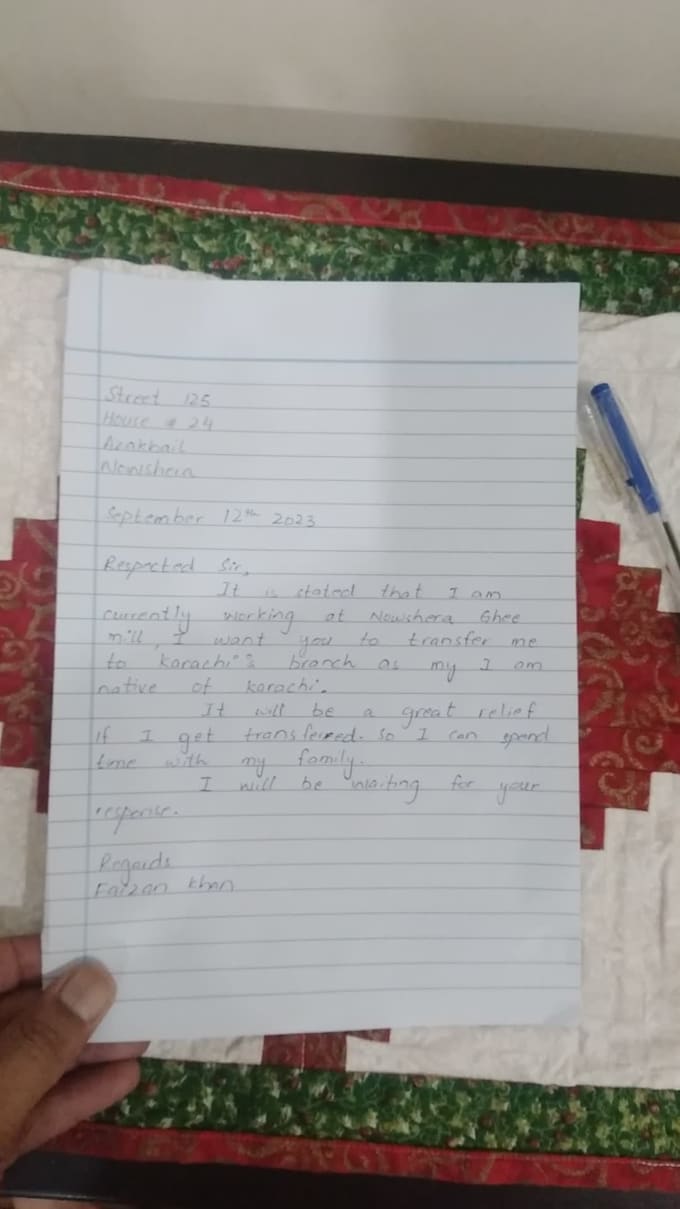 Street 125
House # 24
Azakhail
Nowshera
September 12th 2023
Respected Sir,
It is stated that I am
currently working at Nowshera Ghee
mill, I want you to transfer me
to karachi's branch as my I am
native of karachi.
It will be a great relief
if I get transferred. so I can spend
time with my family.
I will be waiting for your
response.
Regards
Faizan khan